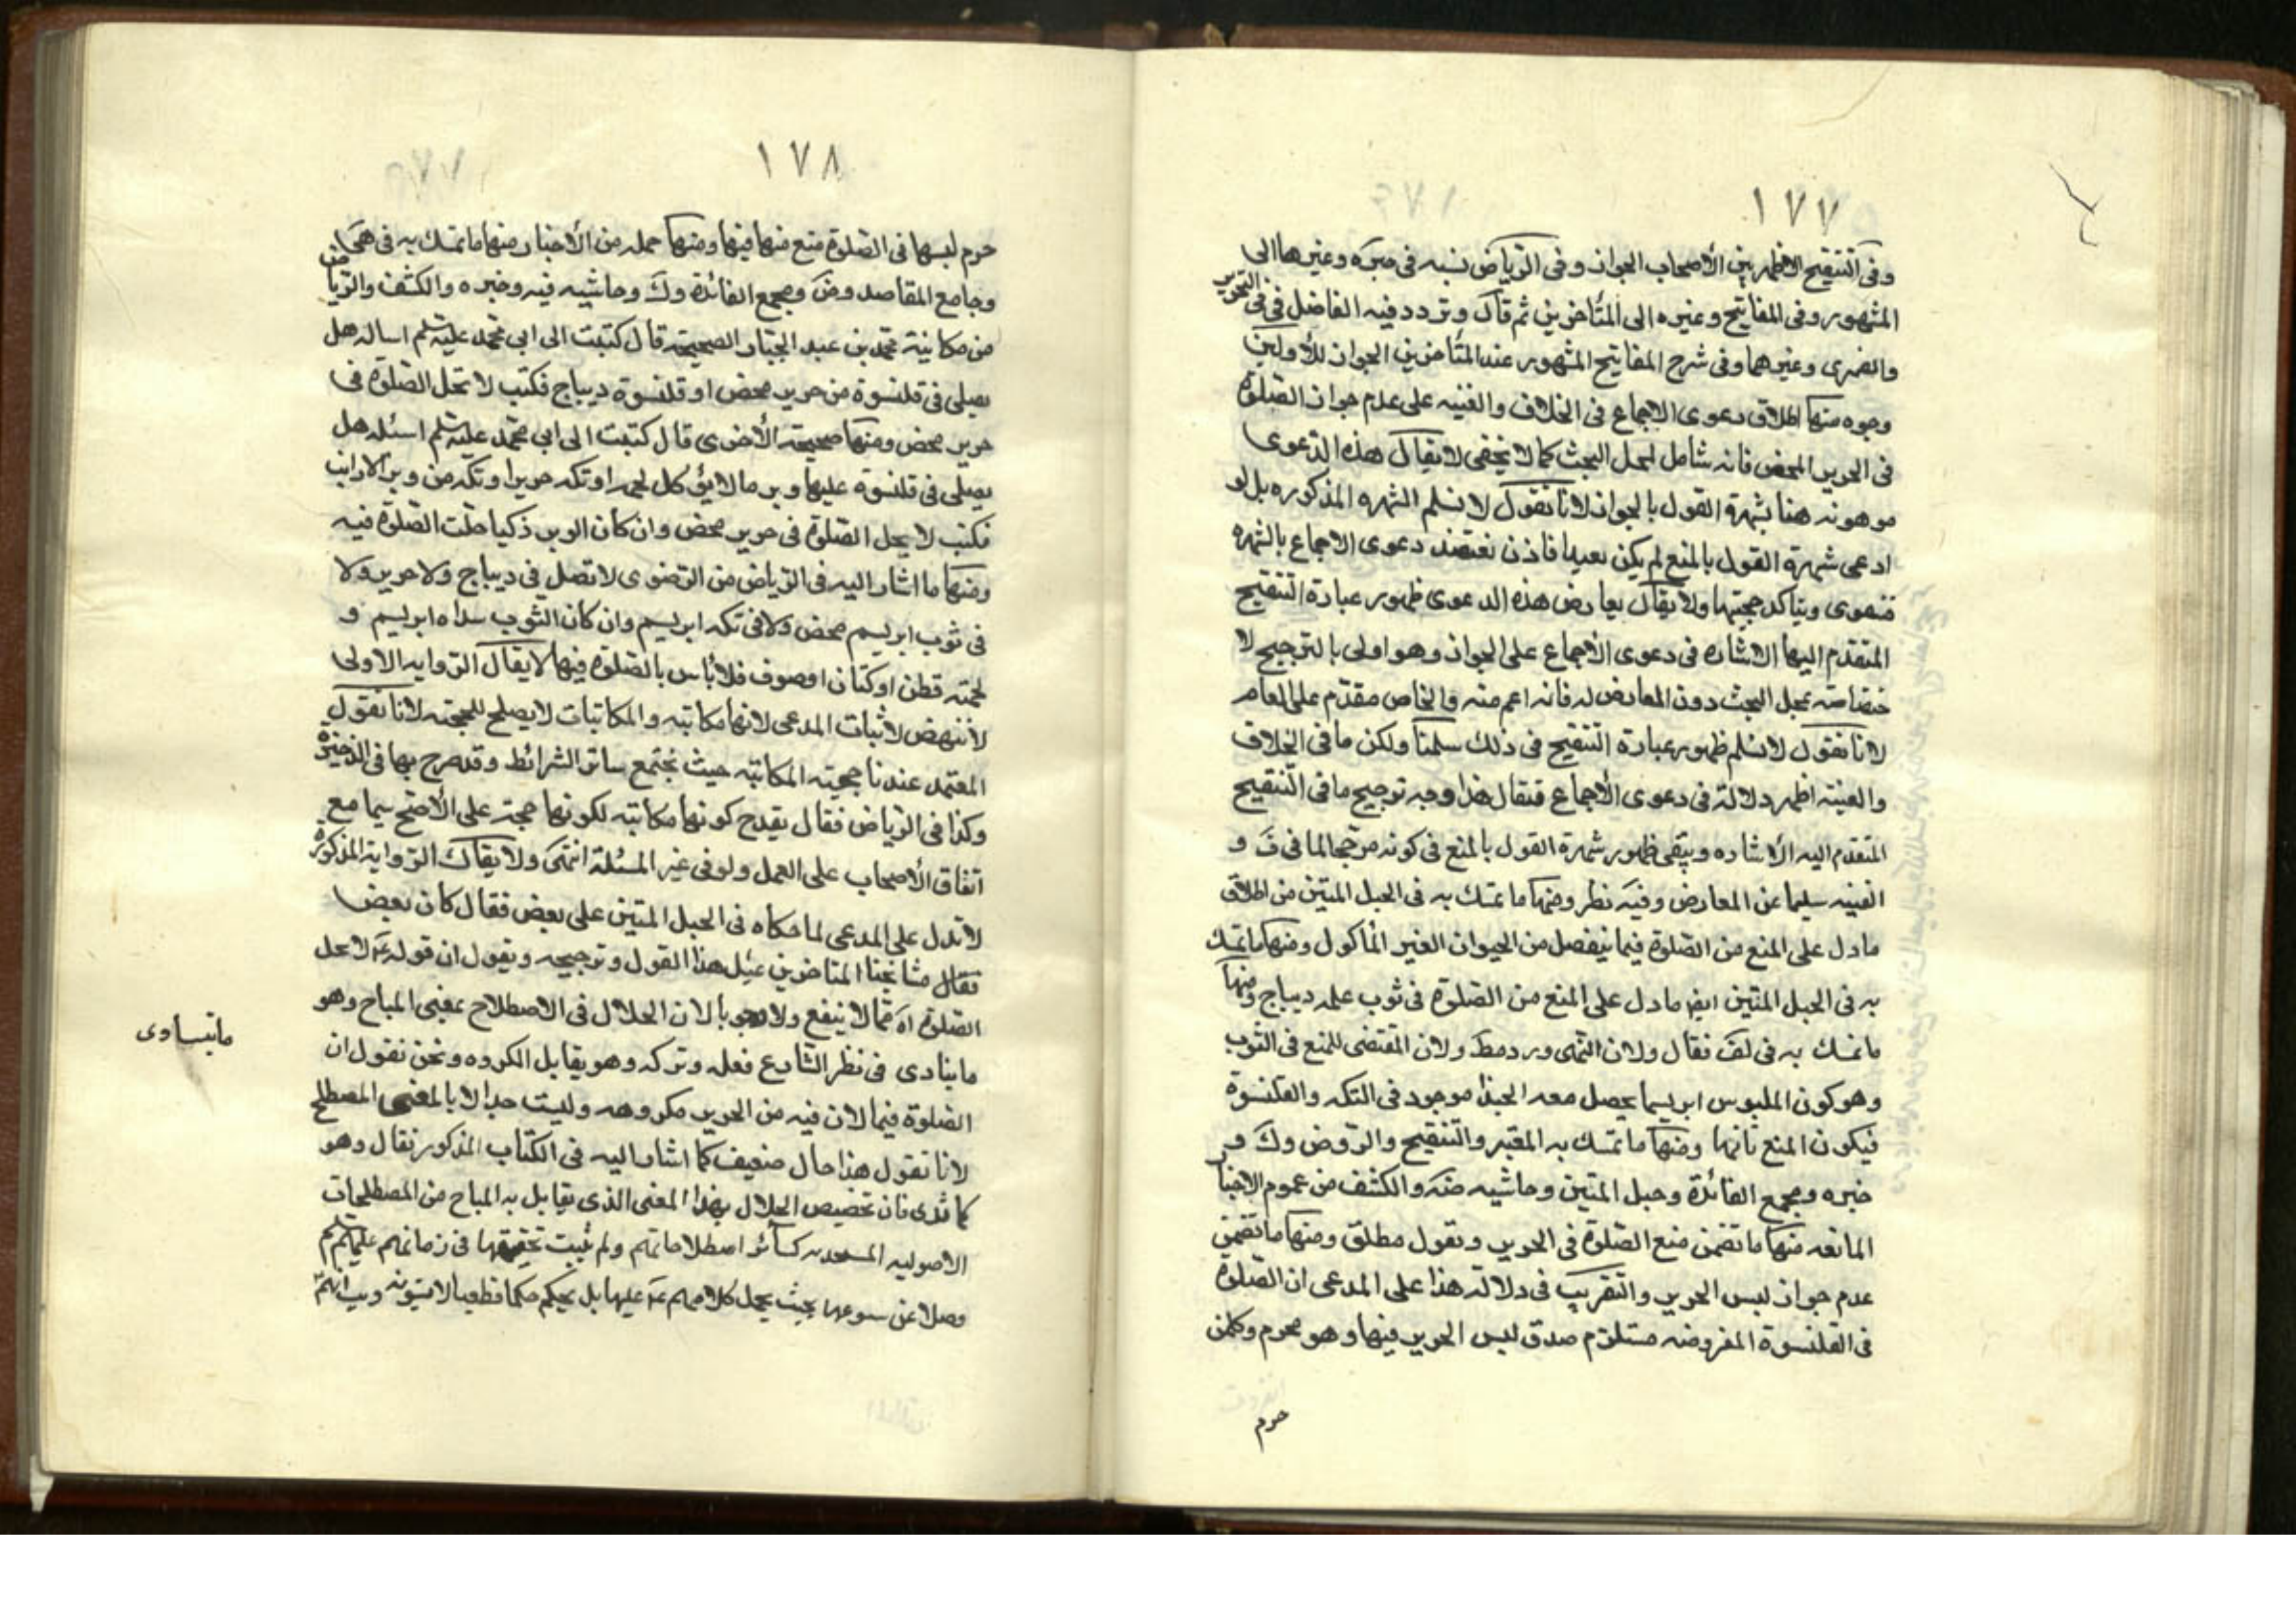 ١٧٧
وفى التنقيح الاظهر بين الأصحاب الجواز وفى الرياض نسبه فى خيره وغيرها الى
المشهور وفى المفاتيح وغيره الى المتأخرين ثم قال وتردد فيه الفاضل فى التحرير
والصيمرى وغيرهما وفى شرح المفاتيح المشهور عند المتأخرين الجواز للأولين
وجوه منها اطلاق دعوى الاجماع فى الخلاف والغنيه على عدم جواز الصلوة
فى الحرير المحض فانه شامل لمحل البحث كما لا يخفى لا يقال هذه الدعوى
موهونه هنا بشهرة القول بالجواز لانا نقول لا نسلم الشهره المذكوره بل لو
ادعى شهرة القول بالمنع لم يكن بعيدا فاذن تعتضد دعوى الاجماع بالشهره
فتقوى ويتأكد حجيتها ولا يقال يعارض هذه الدعوى ظهور عبارة التنقيح
المتقدم اليها الاشاره فى دعوى الأجماع على الجواز وهو اولى بالترجيح لا
ختصاصه بمحل البحث دون المعارض له فانه اعم منه والخاص مقدم على العام
لانا نقول لا نسلم ظهور عبارة التنقيح فى ذلك سلمنا ولكن ما فى الخلاف
والغنيه اظهر دلالة فى دعوى الأجماع فتقال هذا وجه ترجيح ما فى التنقيح
المتقدم اليه الأشاره ويبقى ظهور شهرة القول بالمنع فى كونه مرجحا لما فى ف و
الغنيه سليما عن المعارض وفيه نظر ومنها ما تمسك به فى الحبل المتين من اطلاق
ما دل على المنع من الصلوة فيما ينفصل من الحيوان الغير المأكول ومنها ما تمسك
به فى الحبل المتين ايضا ما دل على المنع من الصلوة فى ثوب علمه ديباج ومنها
ما تمسك به فى لف فقال ولان النهى ورد مط ولان المقتضى للمنع فى الثوب
وهو كون الملبوس ابريسما يحصل معه الخيلا موجود فى التكه والقلنسوة
فيكون المنع ثابتا ومنها ما تمسك به المعتبر والتنقيح والروض وك و
خيره ومجمع الفائدة وحبل المتين وحاشيه ضه والكشف من عموم الاخبا
المانعه منها ما تضمن منع الصلوة فى الحرير وتقول مطلق ومنها ما تضمن
عدم جواز لبس الحرير والتقريب فى دلالة هذا على المدعى ان الصلوة
فى القلنسوة المفروضه مستلزم صدق لبس الحرير فيها وهو محرم وكلمن
حرم
١٧٨
حرم لبسها فى الصلوة منع منها فيها ومنها جمله من الأخبار منها ما تمسك به فى هى
وجامع المقاصد وض ومجمع الفائدة وك وحاشيه فيه وخيره والكشف والريا ض
من مكاتبة محمد بن عبد الجبار الصحيحه قال كتبت الى ابى محمد عليه السلم اساله هل
يصلى فى قلنسوة من حرير محض او قلنسوة ديباج فكتب لا تحل الصلوة فى
حرير محض ومنها صحيحه الأخرى قال كتبت الى ابى محمد عليه السلم اسئله هل
يصلى فى قلنسوه عليها وبر ما لا يؤكل لحمه او تكه حريرا وتكه من وبر الارانب
فكتب لا يحل الصلوة فى حرير محض وان كان الوبر ذكيا حلت الصلوة فيه
ومنها ما اشار اليه فى الرياض من الرضوى لا تصل فى ديباج ولا حرير ولا
فى ثوب ابريسم محض ولا فى تكه ابريسم وان كان الثوب سداه ابريسم و
لحمته قطن او كتان او صوف فلا بأس بالصلوة فيها لا يقال الروايه الاولى
لا تنهض لاثبات المدعى لانها مكاتبه والمكاتبات لا يصلح للحجته لانا نقول
المعتمد عندنا حجيته المكاتبه حيث يجتمع سائر الشرائط وقد صرح بها فى الذخيرة
وكذا فى الرياض فقال يقدح كونها مكاتبه لكونها حجة على الأصح سيما مع
اتفاق الأصحاب على العمل ولو فى غير المسئلة انتهى ولا يقال الرواية المذكورة
لا تدل على المدعى لما حكاه فى الحبل المتين على بعض فقال كان بعض
فقال مشايخنا المتاخرين يميل هذا القول وترجيحه ويقول ان قوله ع لا تحل
الصلوة اه مما لا ينفع ولا وجوبا لان الحلال فى الاصطلاح بمعنى المباح وهو
ما ينادى فى نظر الشارع فعله وتركه وهو يقابل المكروه ونحن نقول ان
الصلوة فيما لان فيه من الحرير مكروهه وليست حلالا بالمعنى المصطلح
لانا نقول هذا حال ضعيف كما اشار اليه فى الكتاب المذكور فقال وهو
كما ترى فان تخصيص الحلال بهذا المعنى الذى يقابل به المباح من المصطلحات
الاصوليه المستحدثه كسائر اصطلاحاتهم ولم يثبت تحقيقها فى زمانهم عليهم السلم
وفضلا عن شيوعها بحيث يحمل كلامهم ع عليها بل يحكم حكما قطعيا
ما يتساوى